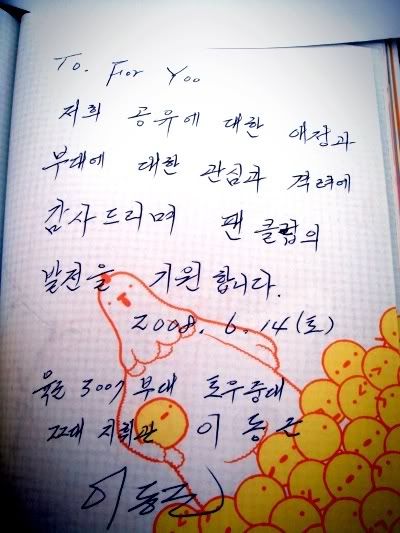 To. For You
저희 공유에 대한 애정과
부대에 대한 관심과 격려에
감사드리며 팬클럽의
발전을 기원합니다.
2008. 6. 14(토)
육군 3007 부대 토우중대
22대 지휘관 이동근
이동근